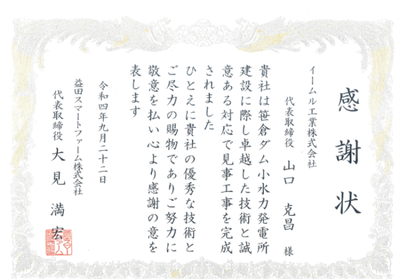 感謝状
イームル工業株式会社
代表取締役 山口 克昌 様
貴社は笹倉ダム小水力発電所
建設に際し卓越した技術と誠
意ある対応で見事工事を完成
されました
ひとえに貴社の優秀な技術と
ご尽力の賜物でありご努力に
敬意を払い心より感謝の意を
表します
令和四年九月二十二日
益田スマートファーム株式会社
代表取締役 大見 満宏